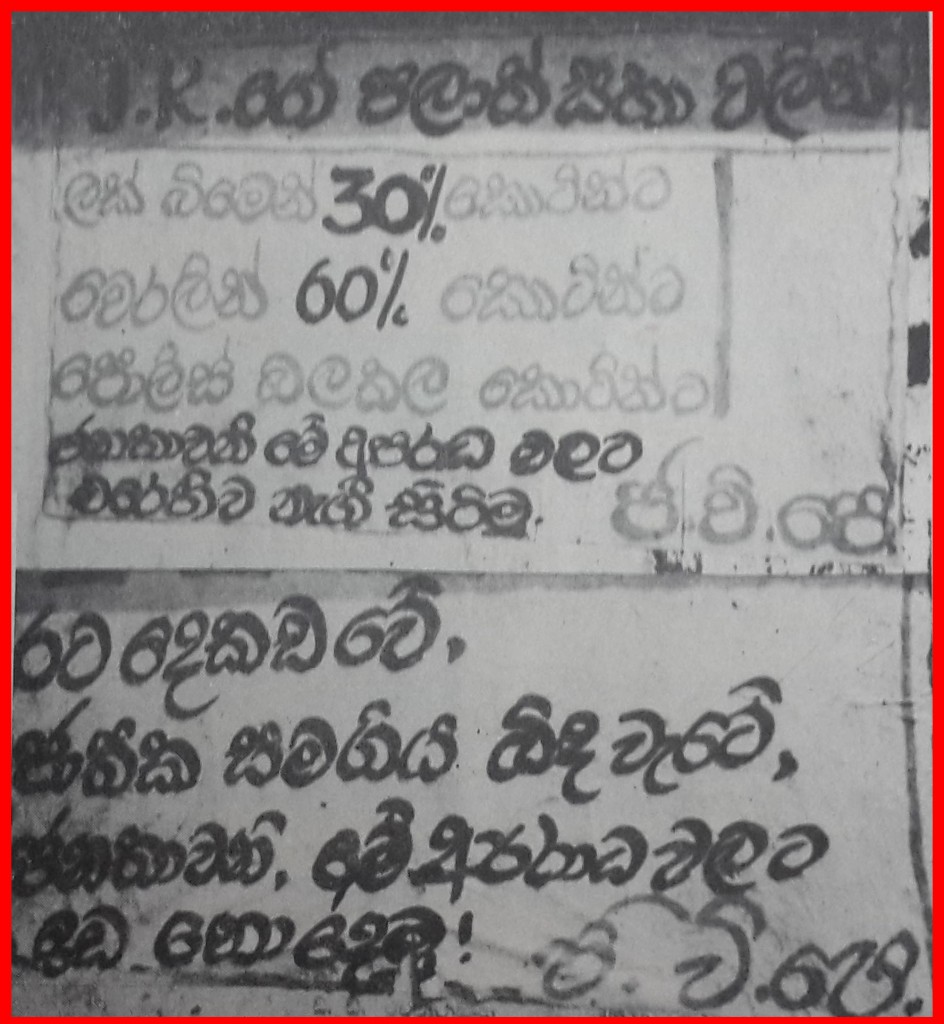 J.R.ගේ පලාත් සභා වලින්
ලක් බිමෙන් 30% කොටින්ට
වෙරලින් 60% කොටින්ට
පොලිස් බලකල කොටින්ට
ජනතාවනි මේ අපරාධ වලට
එරෙහිව නැගී සිටිමු.
ජ.වි.පෙ.
රට දෙකඩ වේ,
ජාතික සමගිය බිඳ වැටේ,
ජනතාවනි, මේ අපරාධ වලට
ඉඩ නොදෙමු!
ජ.වි.පෙ.